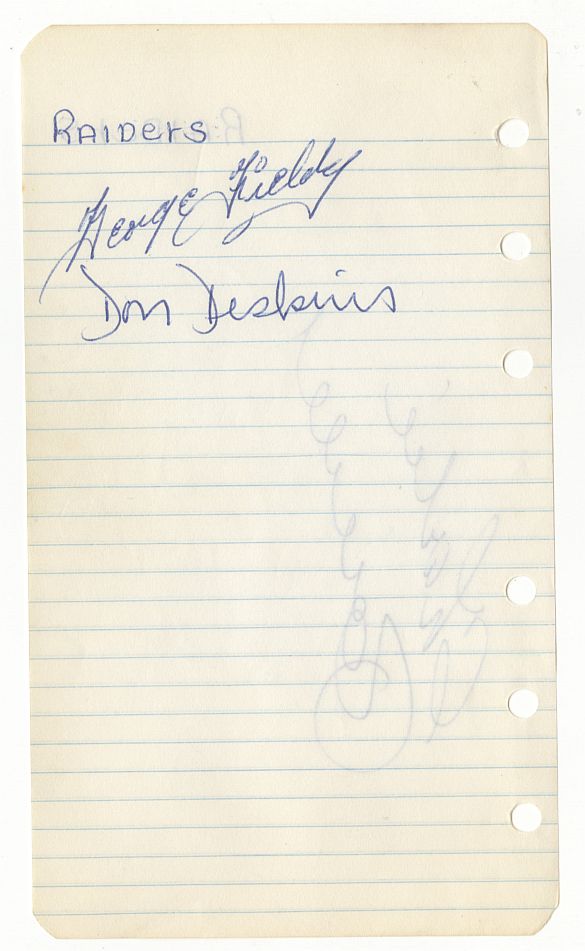 RAIDers
George Fields
Don Deskins